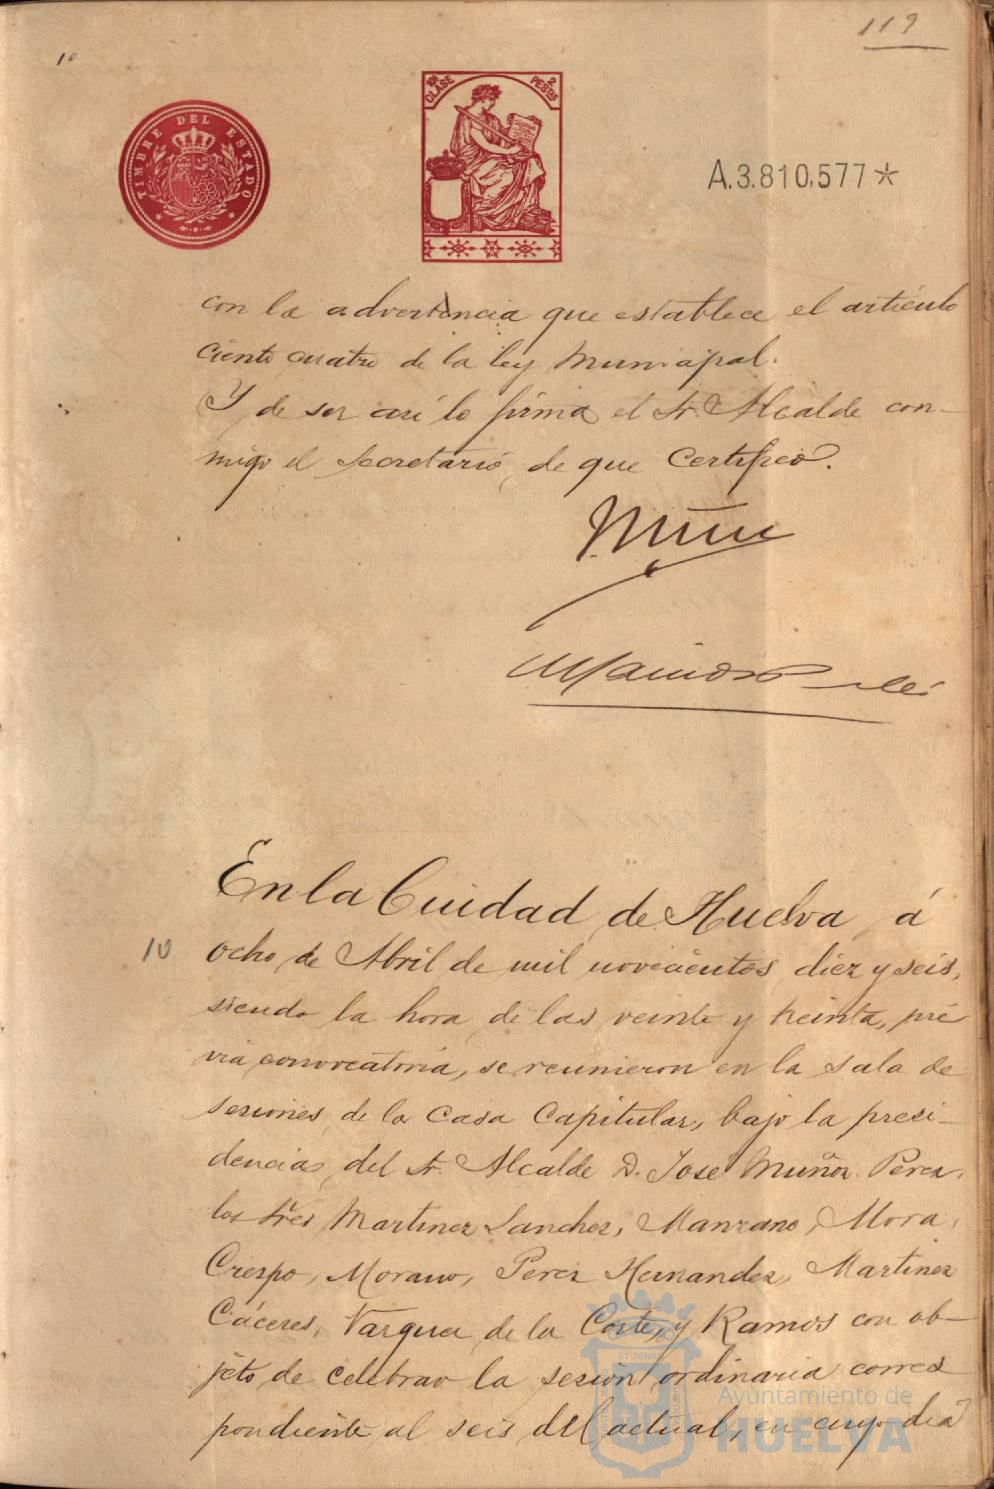 119
10
TIMBRE DEL ESTADO
10ª CLASE 2 PESETAS
A.3.810,577*
con la advertencia que establece el artículo
ciento cuatro de la ley Municipal.
Y de ser así lo firma el Sr. Alcalde con-
migo el Secretario, de que Certifico.
Muñoz
En la Ciudad de Huelva á
10
ocho de Abril de mil novecientos diez y seis,
siendo la hora de las veinte y treinta, pré
via convocatoria, se reunieron en la sala de
sesiones de la Casa Capitular, bajo la presi-
dencia, del Sr. Alcalde D. José Muñoz Perez,
los Sres Martinez Sanchez, Manzano, Mora,
Crespo, Morano, Perez Hernandez, Martinez
Cáceres, Vazquez de la Corte, y Ramos con ob-
jeto de celebrar la sesión ordinaria corres
pondiente al seis del actual, en cuyo dia
Ayuntamiento de
HUELVA